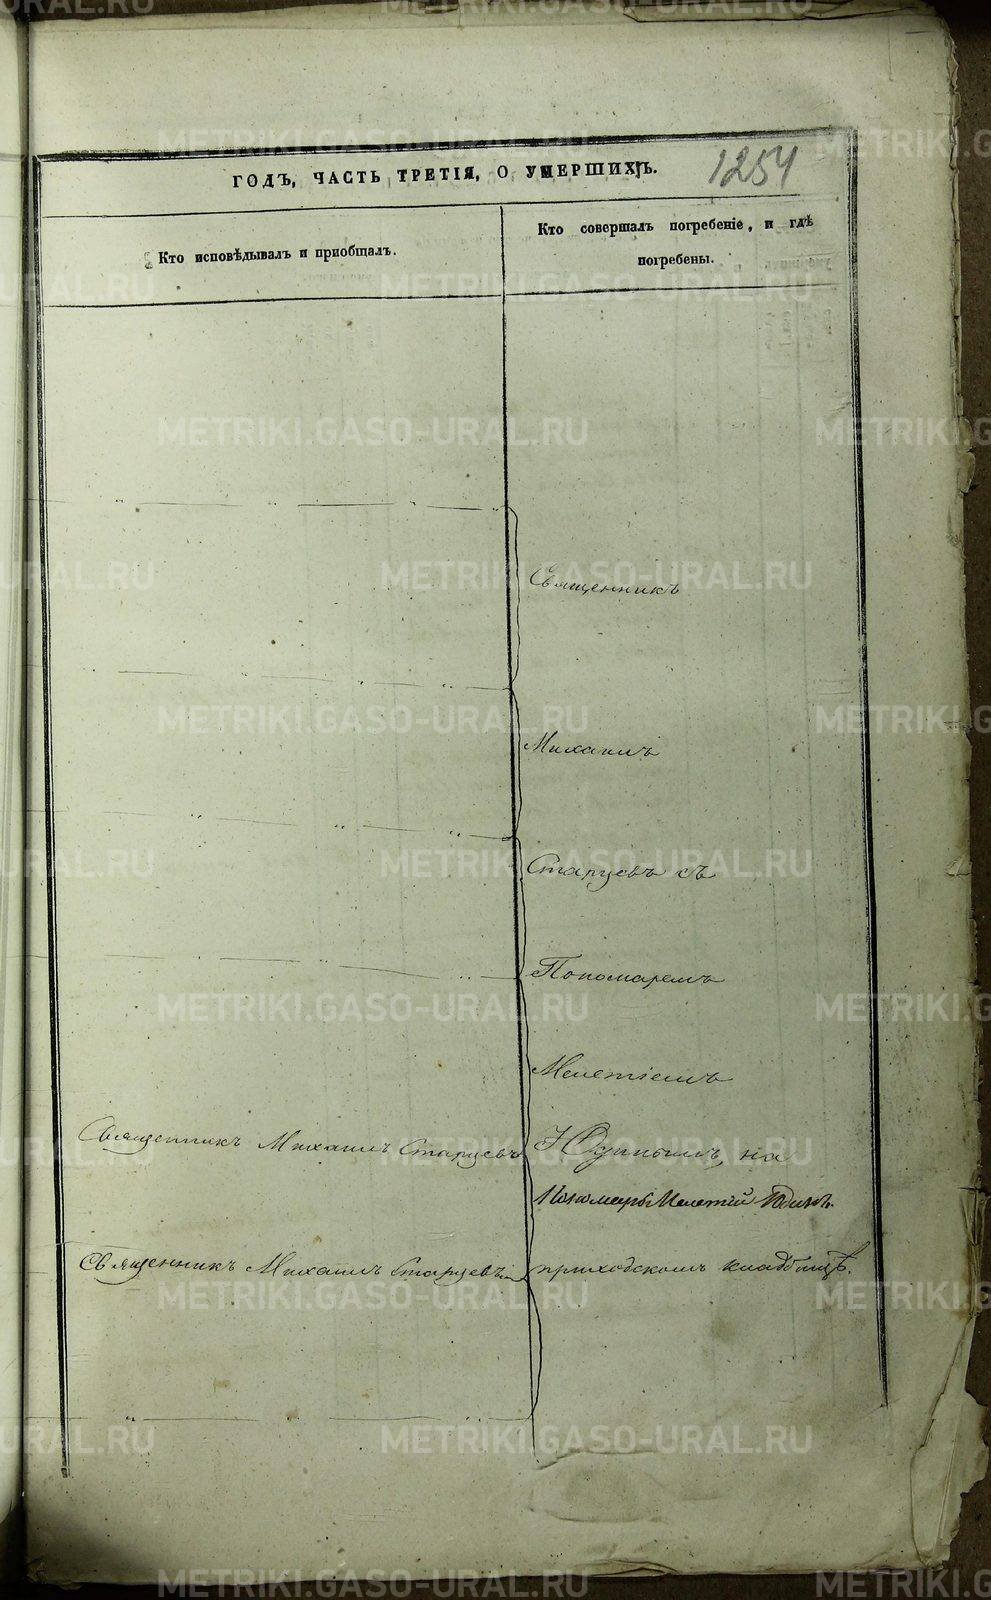 ГОДЪ, ЧАСТЬ ТРЕТІЯ, О УМЕРШИХЪ.
1254
Кто исповѣдывалъ и пріобщалъ.
Кто совершалъ погребеніе, и гдѣ
погребены.
Священникъ
Михаилъ
Старцевъ съ
Пономаремъ
Мелетіемъ
Священникъ Михаилъ Старцевъ
Юдинымъ, на
Пономарь Мелетій Юдинъ.
Священникъ Михаилъ Старцевъ
приходскомъ кладбищѣ.
METRIKI.GASO-URAL.RU